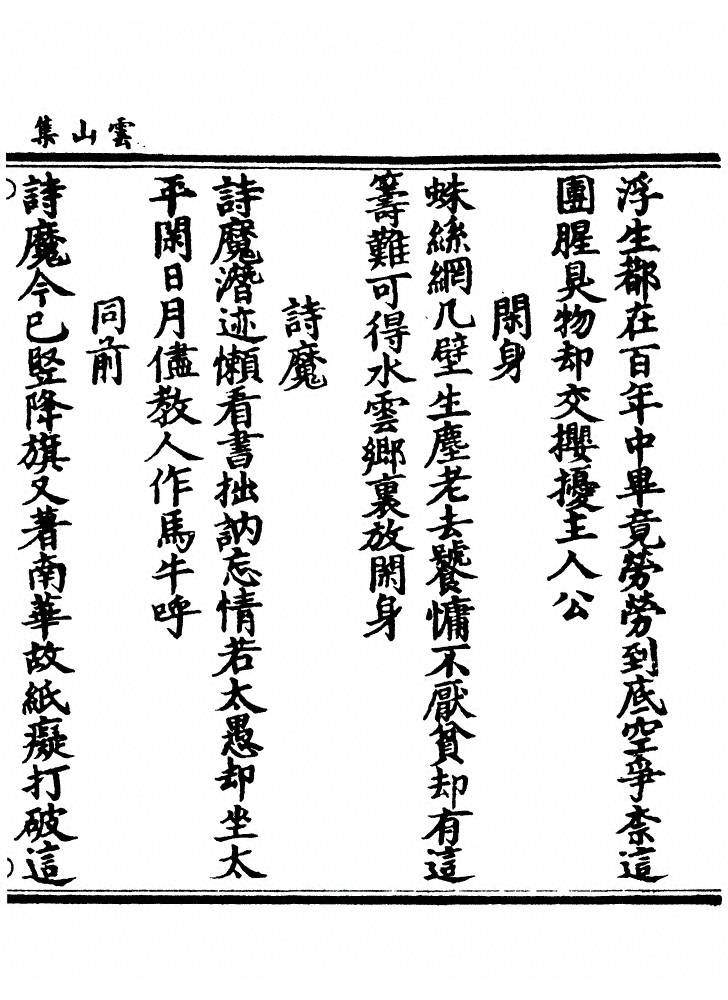 雲山集
浮生都在百年中畢竟勞勞到底空爭柰這
團腥臭物却交攖擾主人公
閑身
蛛絲網几壁生塵老去饕慵不厭貧却有這
籌難可得水雲鄉裏放閑身
詩魔
詩魔潛迹懶看書拙訥忘情若太愚却坐太
平閑日月儘教人作馬牛呼
同前
詩魔今已竪降旗又著南華故紙癡打破這